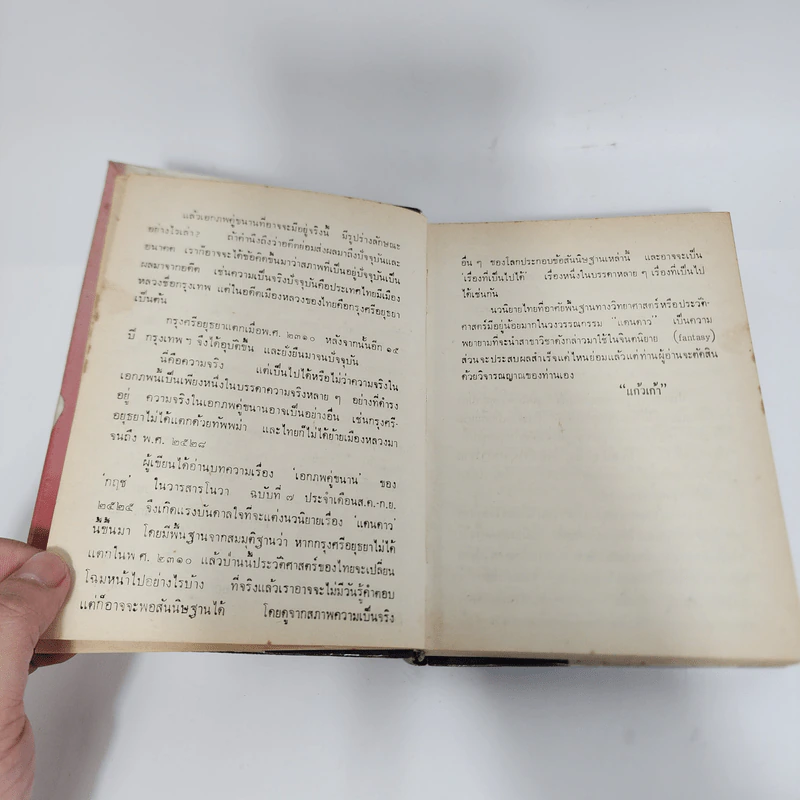 แล้วเอกภพคู่ขนานที่อาจจะมีอยู่จริงนี้ มีรูปร่างลักษณะ
อย่างไรเล่า? ถ้าคำนึงถึงว่าอดีตย่อมส่งผลมาถึงปัจจุบันและ
อนาคต เราก็อาจจะได้ข้อคิดขึ้นมาว่าสภาพที่เป็นอยู่ปัจจุบันเป็น
ผลมาจากอดีต เช่นความเป็นจริงปัจจุบันคือประเทศไทยมีเมือง
หลวงชื่อกรุงเทพ แต่ในอดีตเมืองหลวงของไทยคือกรุงศรีอยุธยา
เป็นต้น
กรุงศรีอยุธยาแตกเมื่อพ.ศ. ๒๓๑๐ หลังจากนั้นอีก ๑๕
ปี กรุงเทพฯ จึงได้อุบัติขึ้น และยั่งยืนมาจนปัจจุบัน
นี่คือความจริง แต่เป็นไปได้หรือไม่ว่าความจริงใน
เอกภพนี้เป็นเพียงหนึ่งในบรรดาความจริงหลาย ๆ อย่างที่ดำรง
อยู่ ความจริงในเอกภพคู่ขนานอาจเป็นอย่างอื่น เช่นกรุงศรี-
อยุธยาไม่ได้แตกด้วยทัพพม่า และไทยก็ไม่ได้ย้ายเมืองหลวงมา
จนถึง พ.ศ. ๒๕๒๘
ผู้เขียนได้อ่านบทความเรื่อง 'เอกภพคู่ขนาน' ของ
'กฤช' ในวารสารโนวา ฉบับที่ ๗ ประจำเดือนส.ค.-ก.ย.
๒๕๒๕ จึงเกิดแรงบันดาลใจที่จะแต่งนวนิยายเรื่อง 'แดนดาว'
นี้ขึ้นมา โดยมีพื้นฐานจากสมมุติฐานว่า หากกรุงศรีอยุธยาไม่ได้
แตกในพ.ศ. ๒๓๑๐ แล้วป่านนี้ประวัติศาสตร์ของไทยจะเปลี่ยน
โฉมหน้าไปอย่างไรบ้าง ที่จริงแล้วเราอาจจะไม่มีวันรู้คำตอบ
แต่ก็อาจจะพอสันนิษฐานได้ โดยดูจากสภาพความเป็นจริง
อื่น ๆ ของโลกประกอบข้อสันนิษฐานเหล่านี้ และอาจจะเป็น
'เรื่องที่เป็นไปได้' เรื่องหนึ่งในบรรดาหลาย ๆ เรื่องที่เป็นไป
ได้เช่นกัน
นวนิยายไทยที่อาศัยพื้นฐานทางวิทยาศาสตร์หรือประวัติ-
ศาสตร์มีอยู่น้อยมากในวงวรรณกรรม "แดนดาว" เป็นความ
พยายามที่จะนำสาขาวิชาดังกล่าวมาใช้ในจินตนิยาย (fantasy)
ส่วนจะประสบผลสำเร็จแค่ไหนย่อมแล้วแต่ท่านผู้อ่านจะตัดสิน
ด้วยวิจารณญาณของท่านเอง
"แก้วเก้า"